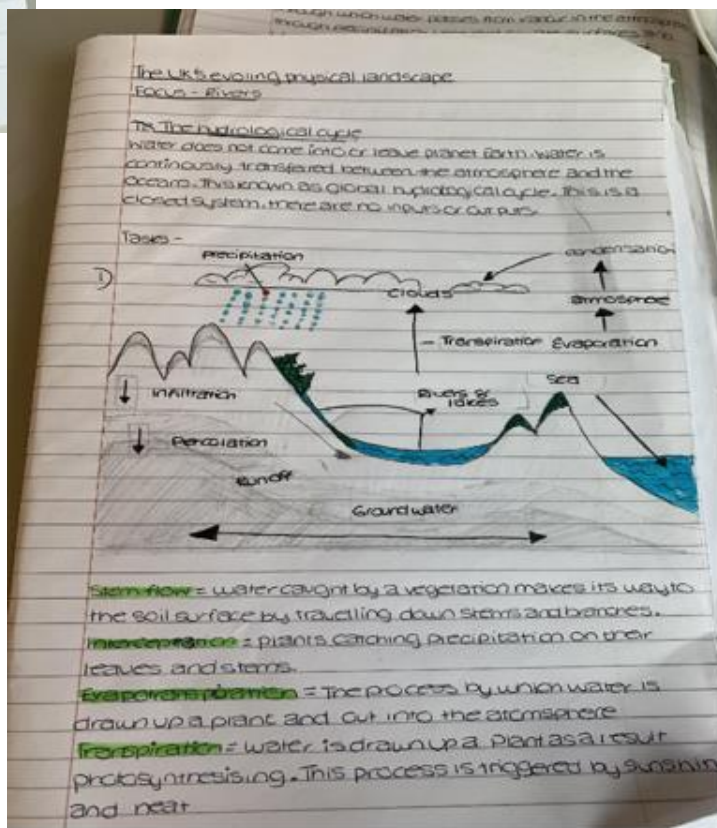 through which water passes from vapour in the atmosphere
through
The UK's evoling physical landscape
Focus - Rivers
The hydrological cycle
Water does not come into or leave planet Earth. Water is
continously transfered between the atmosphere and the
Oceans. This known as global hydrological cycle. This is a
closed system, there are no inputs or outputs.
Tasks -
1)
precipitation
condensation
Clouds
atmosphoe
Transpiration
Evaporation
Infiltration
Rivers &
lakes
Sea
Percolation
Runoff
Groundwater
Stem flow = water caught by a vegetation makes its way to
the soil surface by travelling down stems and branches.
Interception = plants catching precipitation on their
leaves and stems.
Evapotranspiration = The process by which water is
drawn up a plant and out into the atomsphere
Transpiration = water is drawn up a plant as a result
photosynthesising. This process is triggered by sunshin
and heat